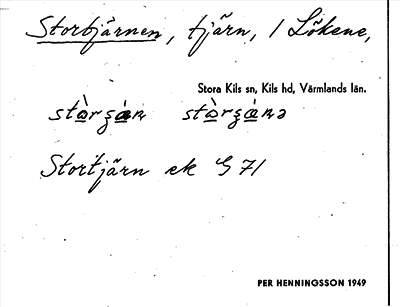 Stortjärnen, tjärn, i Lökene,
Stora Kils sn, Kils hd, Värmlands län.
Stortjärn ek G 71
PER HENNINGSSON 1949